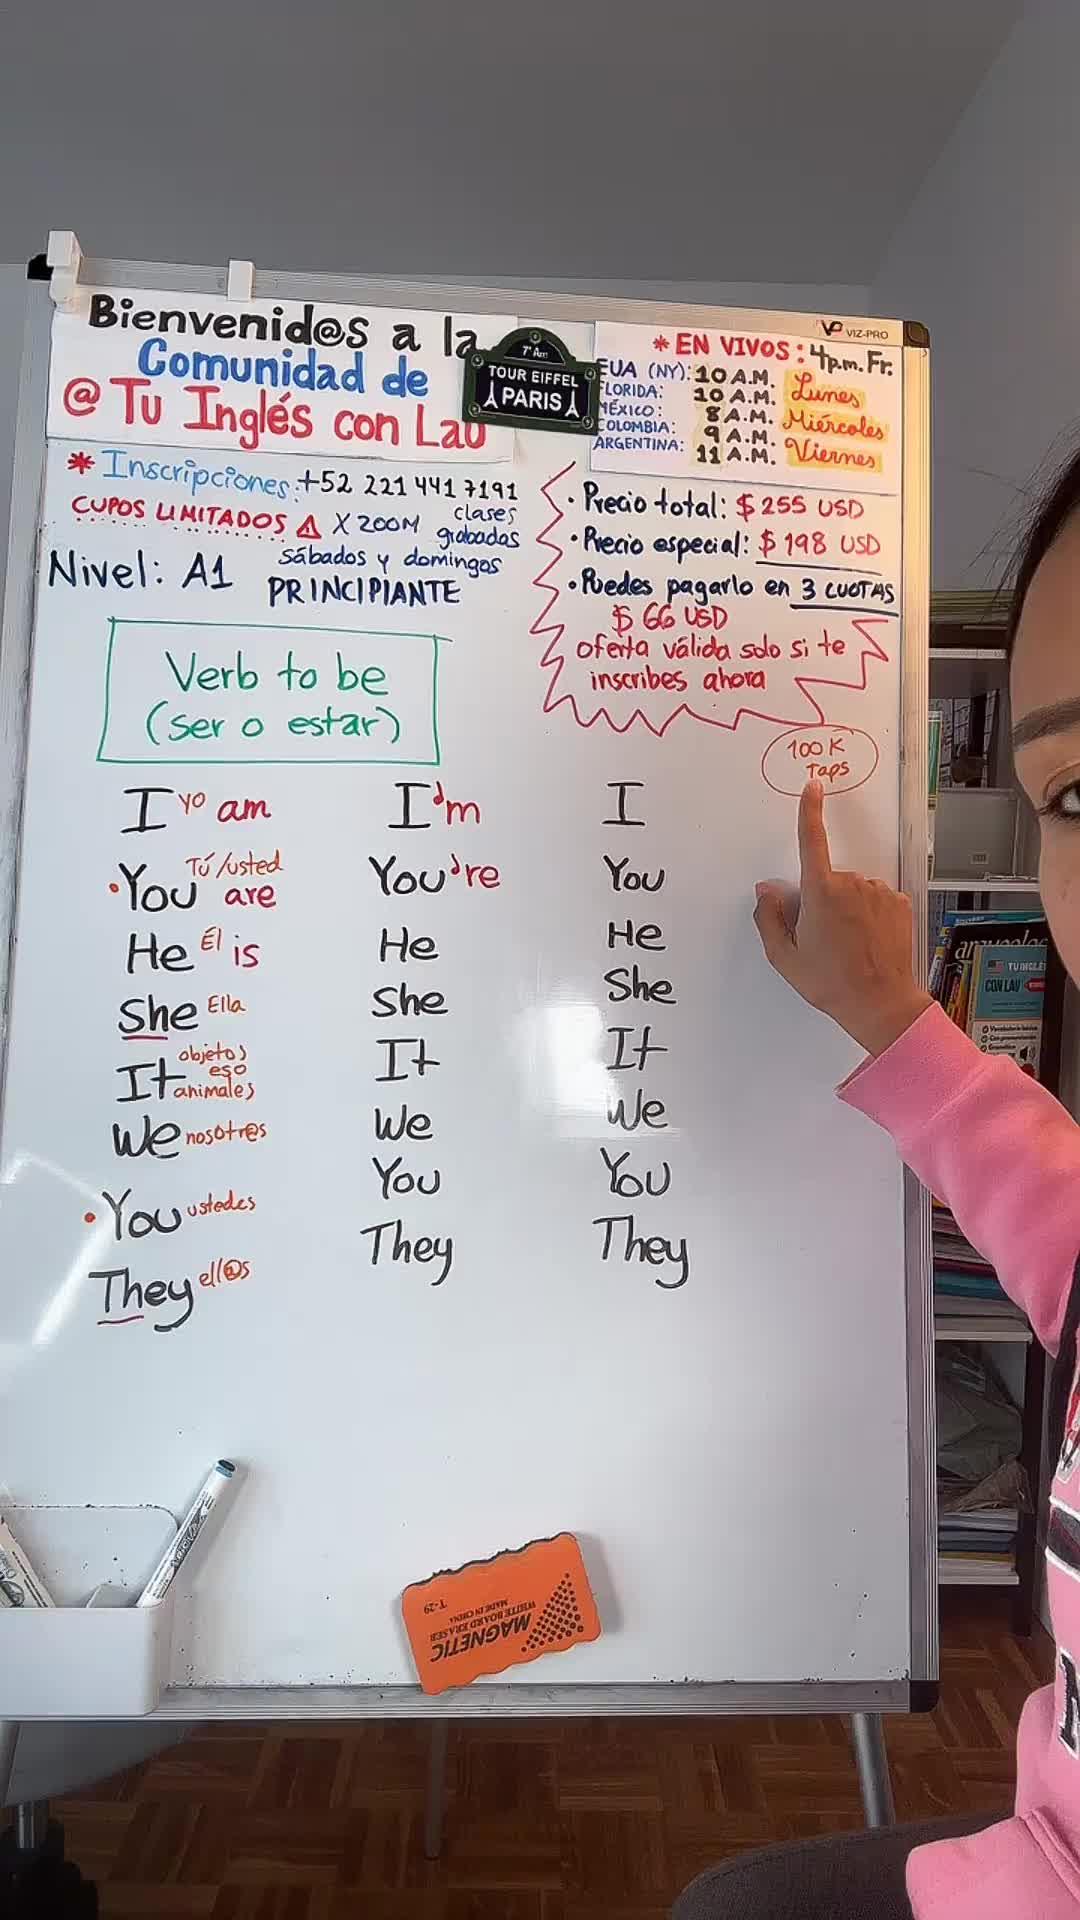 Bienvenid@s a la
Comunidad de
@ Tu Inglés con Lau
7e Arr
TOUR EIFFEL
PARIS
VIZ-PRO
* EN VIVOS: 4p.m. Fr.
EUA (NY): 10 A.M.
FLORIDA: 10 A.M. Lunes
MÉXICO: 8 A.M. Miércoles
COLOMBIA: 9 A.M.
ARGENTINA: 11 A.M. Viernes
* Inscripciones: +52 221 441 7191
CUPOS LIMITADOS X ZOOM clases grabadas
sábados y domingos
Nivel: A1 PRINCIPIANTE
• Precio total: $ 255 USD
• Precio especial: $ 198 USD
• Puedes pagarlo en 3 CUOTAS
$ 66 USD
oferta válida solo si te
inscribes ahora
100 K
Taps
Verb to be
(ser o estar)
I yo am
• You Tú/usted are
He Él is
She Ella
It objetos eso animales
We nosotr@s
• You ustedes
They ell@s
I'm
You're
He
She
It
We
You
They
I
You
He
She
It
We
You
They
TU INGLÉS
CON LAU
MAGNETIC
WHITE BOARD ERASER
MADE IN CHINA
T-29